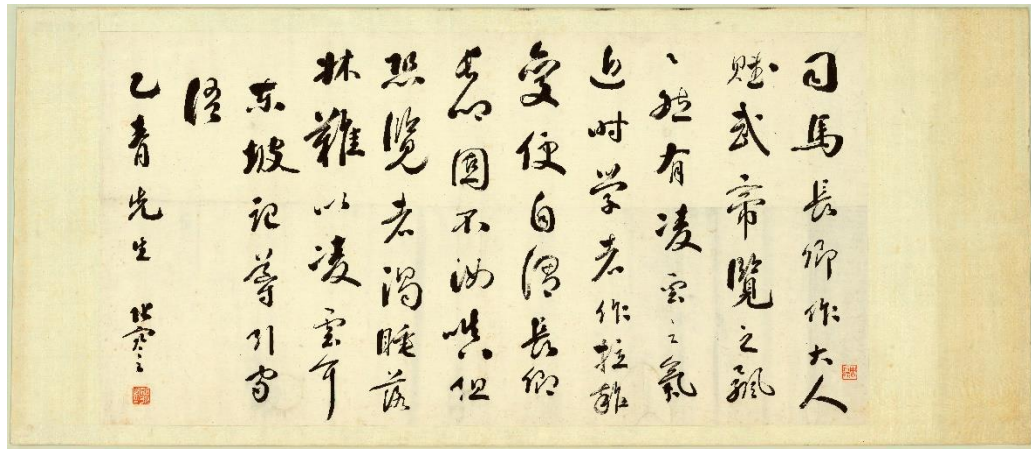 司馬長卿作大人
賦武帝覽之飄
〻然有凌雲之氣
近時学者作拉雜
變便自謂長卿
長卿固不汝嗔但
恐覽者渴睡落
牀難以凌雲耳
东坡记導引家
语
乙青先生